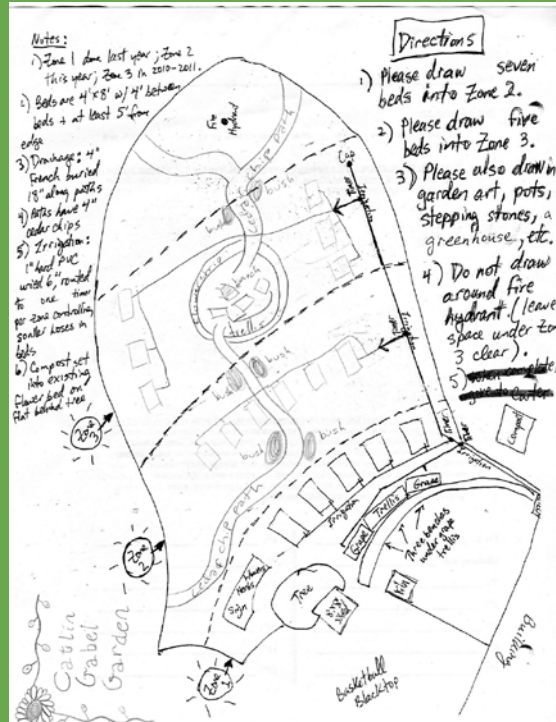 Notes:
1) Zone 1 done last year; Zone 2
this year; Zone 3 in 2010-2011.
2) Beds are 4'x8' w/ 4' between
beds + at least 5' from
edge
3) Drainage: 4"
French buried
18" along paths
4) Paths have 4"
cedar chips
5) Irrigation:
1" hard PVC
6", routed
to one timer
per zone controlling
hoses in
beds
6) Compost set
into existing
flower bed on
flat behind tree
Directions
1) Please draw seven
beds into Zone 2.
2) Please draw five
beds into Zone 3.
3) Please also draw in
garden art, pots,
stepping stones, a
greenhouse, etc.
4) Do not draw
around fire
hydrant (leave
space under Zone
3 clear).
5)
Fire
Hydrant
chip path
bush
bush
bench
trellis
bush
bush
bush
bush
Cedar chip path
Irrigation
Irrigation
Irrigation
Irrigation
Compost
Grape
Trellis
Grape
Three benches
under grape
trellis
Tree
Herbs
Sign
Zone 3
Zone 2
Zone 1
Basketball
Blacktop
Building
Catlin
Gabel
Garden